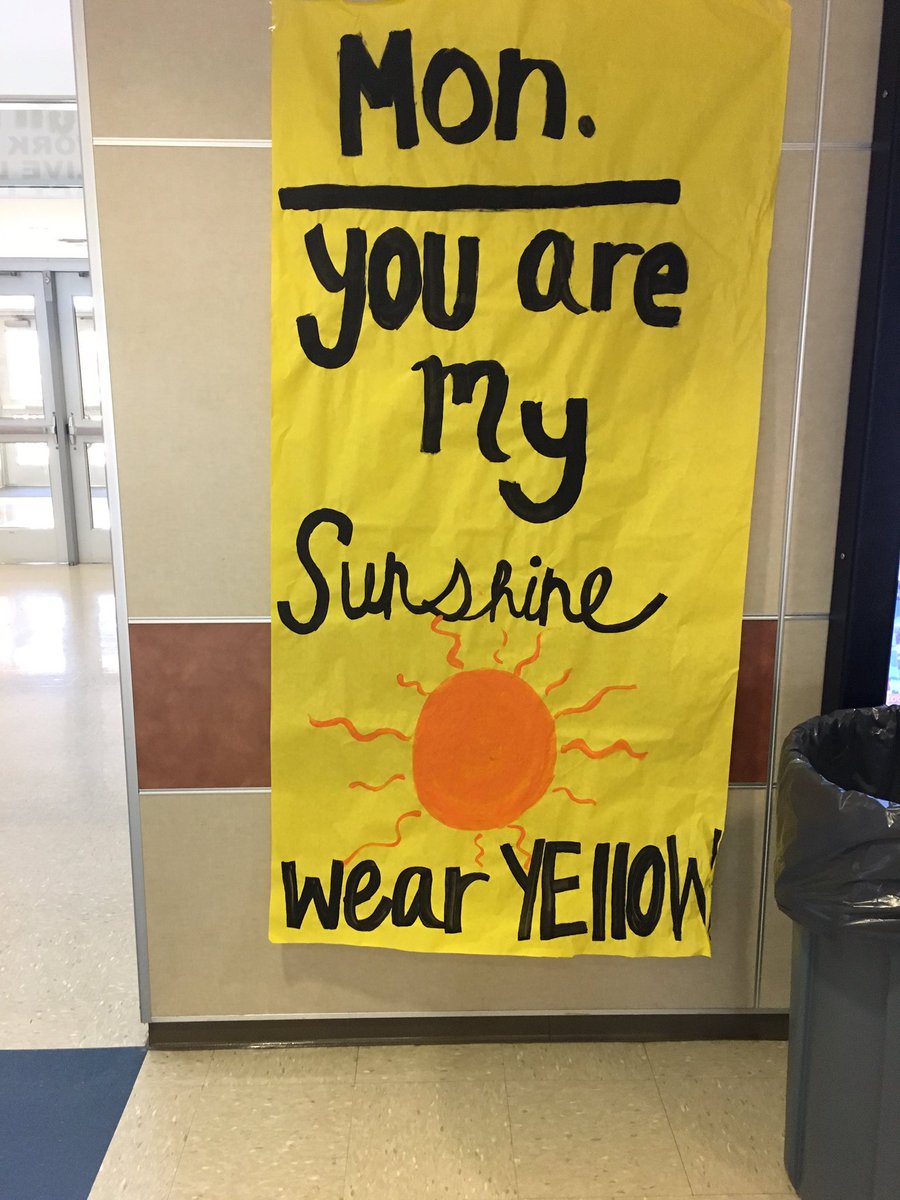 Mon.
you are
my
Sunshine
wear YEllOW
ORK
IVE L